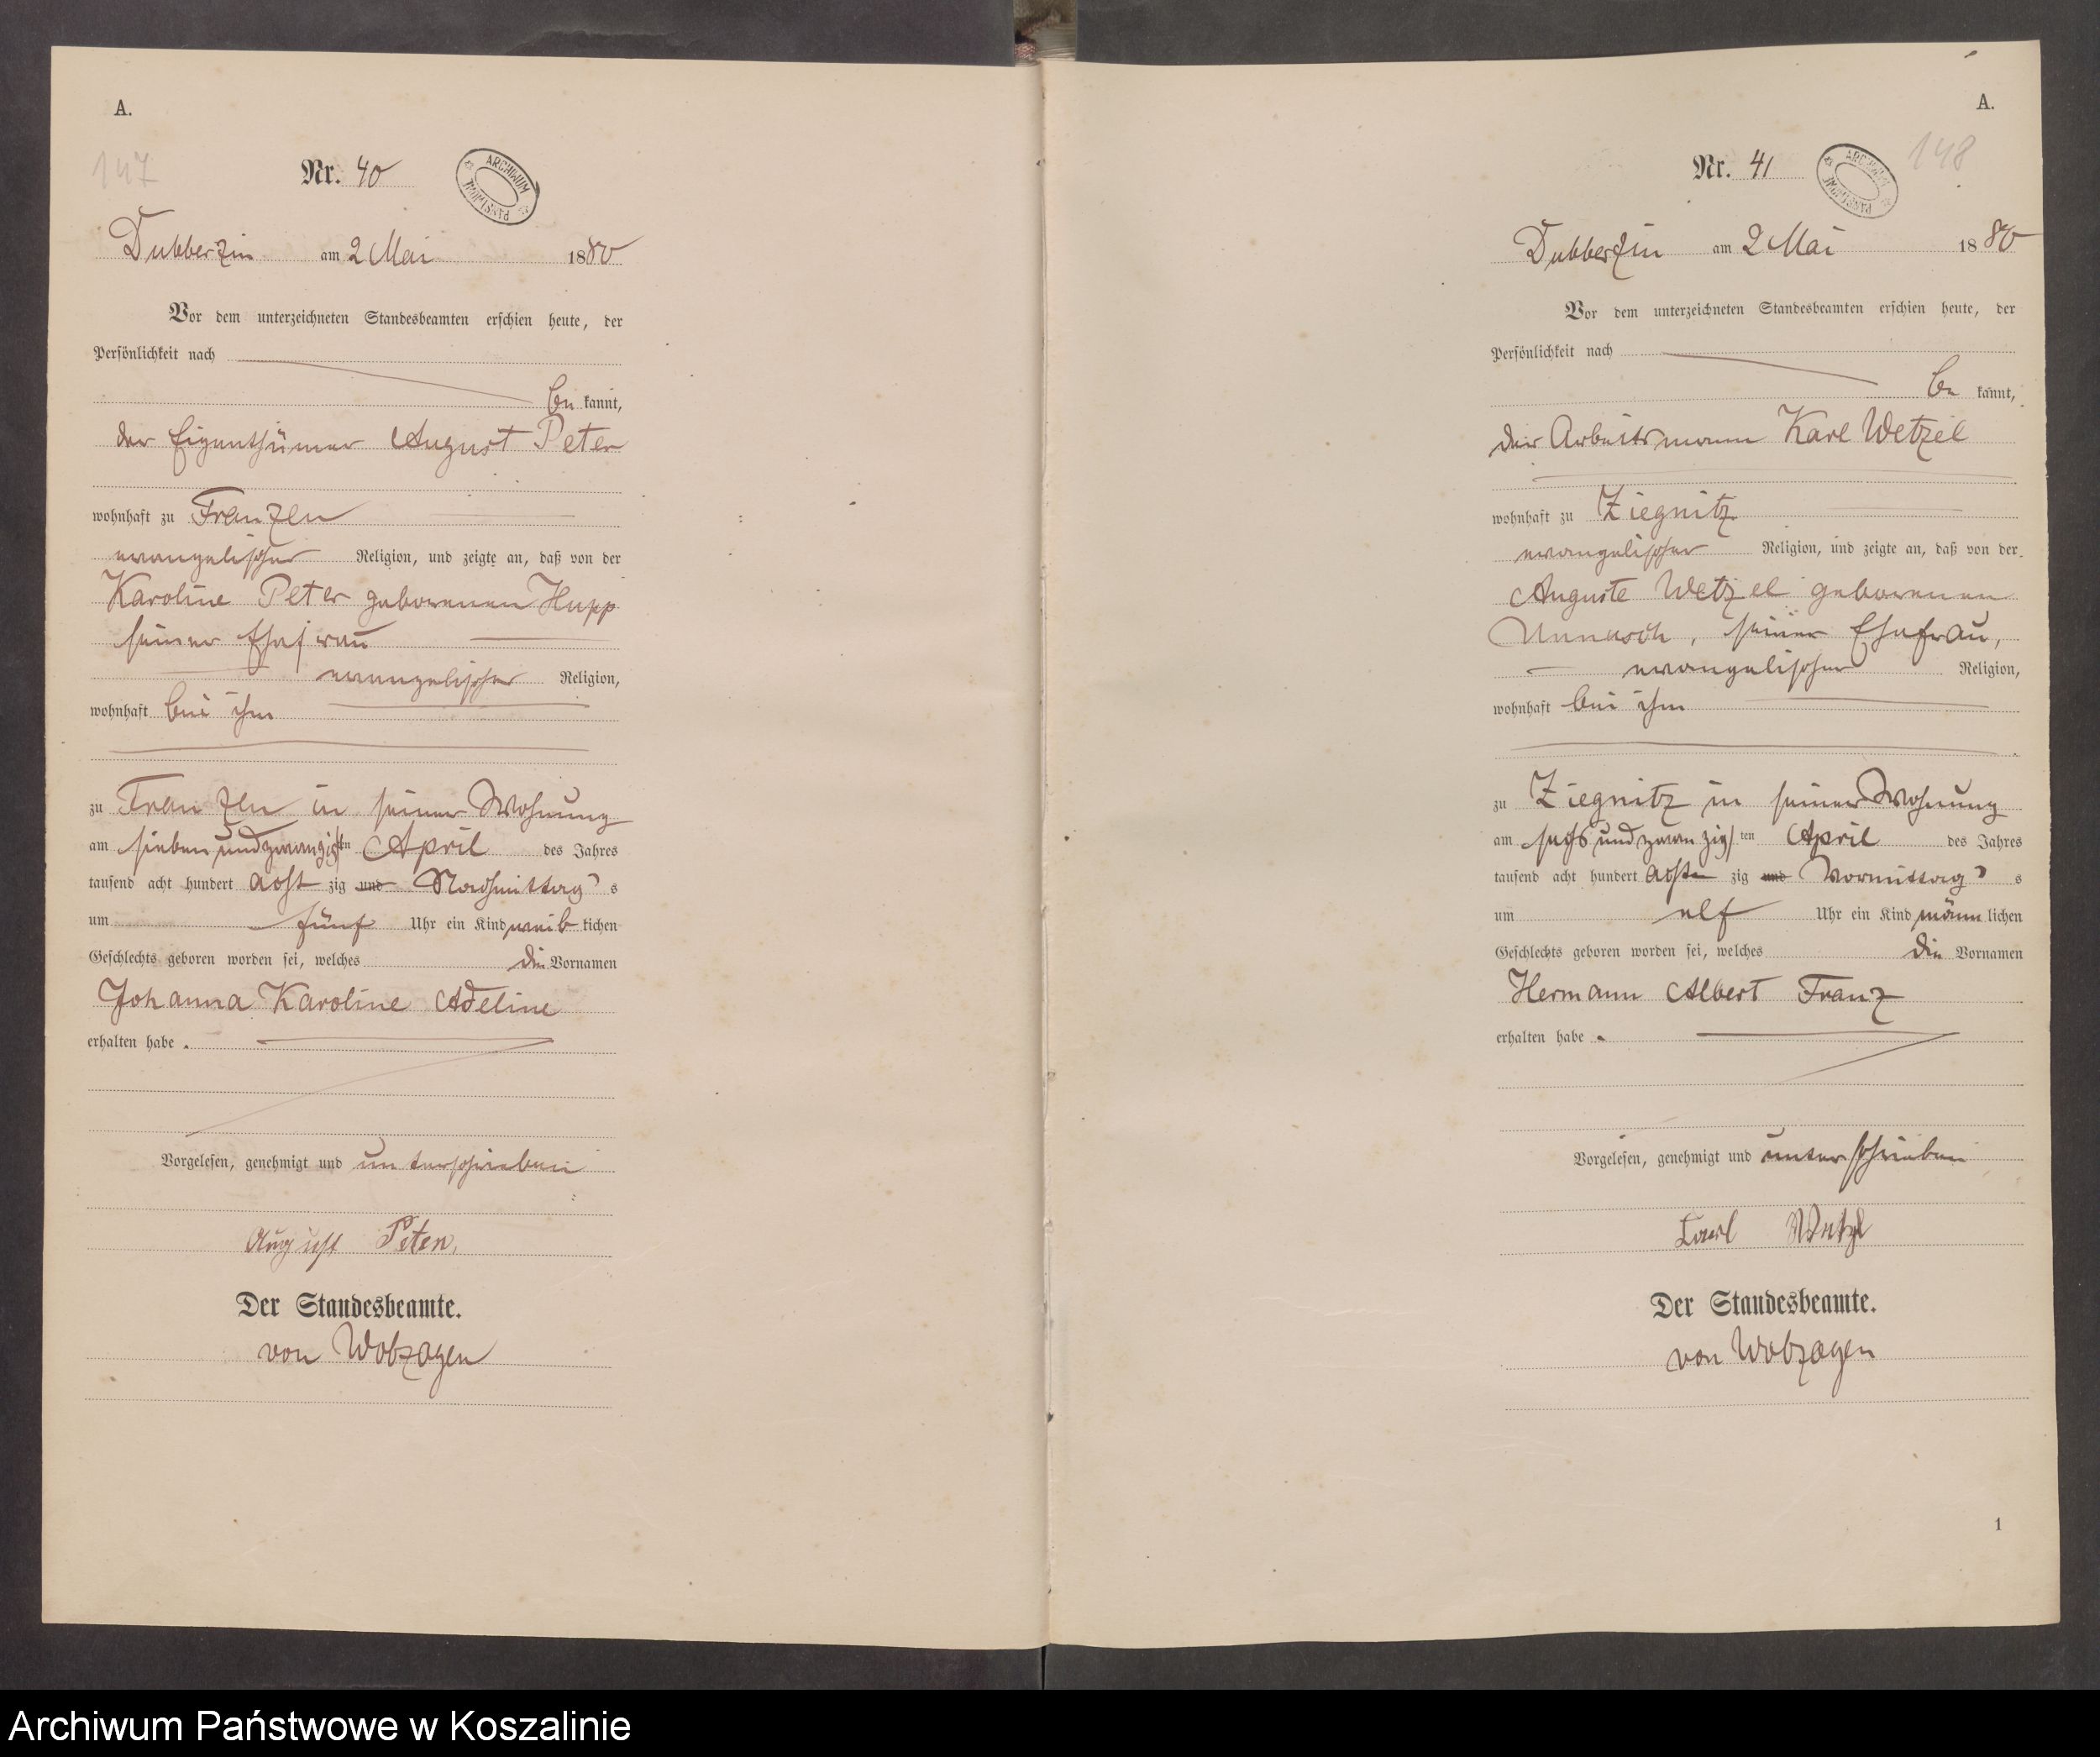 A.
147
Nr. 40
ARCHIWUM PAŃSTWOWE
Dubberzin am 2 Mai 1880
Vor dem unterzeichneten Standesbeamten erschien heute, der
Persönlichkeit nach
be kannt,
der Eigenthümer August Peter
wohnhaft zu Franzen
evangelischer Religion, und zeigte an, daß von der
Karoline Peter geborenen Hupp
seiner Ehefrau
evangelischer Religion,
wohnhaft bei ihm
zu Franzen in seiner Wohnung
am siebenundzwanzigsten April des Jahres
tausend acht hundert acht zig und Nachmittags
um fünf Uhr ein Kind weiblichen
Geschlechts geboren worden sei, welches die Vornamen
Johanna Karoline Adeline
erhalten habe.
Vorgelesen, genehmigt und unterschrieben
August Peter,
Der Standesbeamte.
von Wobzagen
A.
148
Nr. 41
ARCHIWUM PAŃSTWOWE
Dubberzin am 2 Mai 1880
Vor dem unterzeichneten Standesbeamten erschien heute, der
Persönlichkeit nach
be kannt,
der Arbeitsmann Karl Wetzel
wohnhaft zu Ziegnitz
evangelischer Religion, und zeigte an, daß von der
Auguste Wetzel geborenen
Unnasch, seiner Ehefrau,
evangelischer Religion,
wohnhaft bei ihm
zu Ziegnitz in seiner Wohnung
am sechsundzwanzigsten April des Jahres
tausend acht hundert acht zig und Vormittags
um elf Uhr ein Kind männlichen
Geschlechts geboren worden sei, welches die Vornamen
Hermann Albert Franz
erhalten habe.
Vorgelesen, genehmigt und unterschrieben
Carl Wetzel
Der Standesbeamte.
von Wobzagen
1
Archiwum Państwowe w Koszalinie